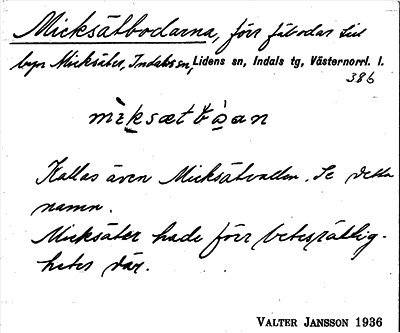 Micksätbodarna, förr fäbodar till
byn Micksäter, Indals sn, Lidens sn, Indals tg, Västernorrl. l.
386
Kallas även Micksätvallen. Se detta
namn.
Micksäter hade förr betesrättig-
heter där.
VALTER JANSSON 1936